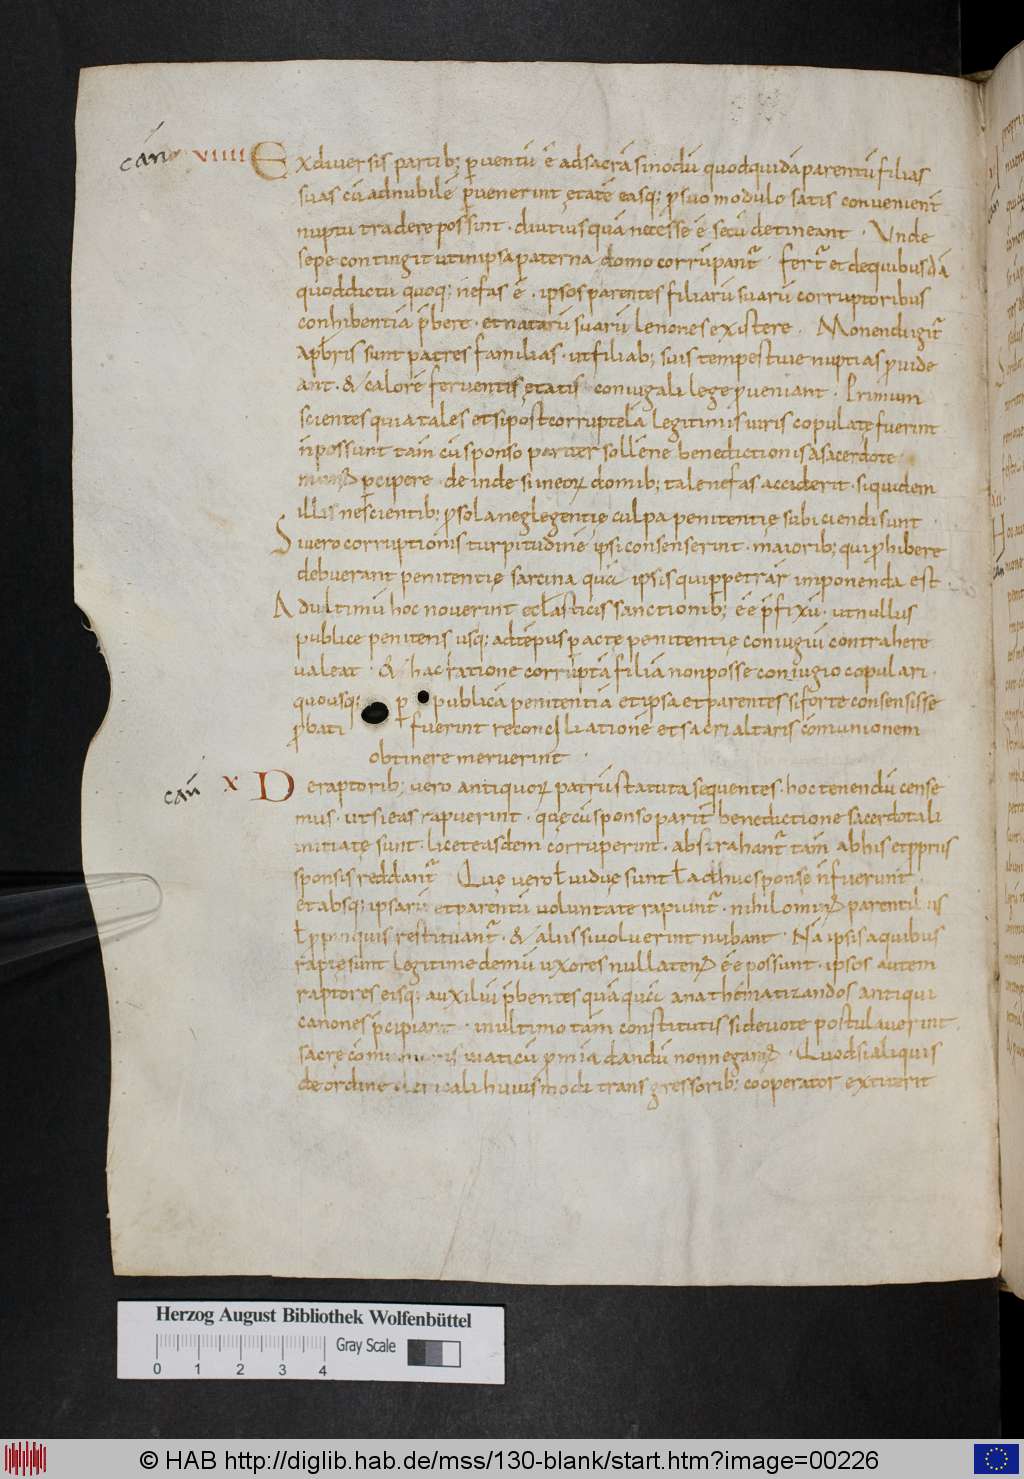 can̄ VIIII Ex diuersis partib; puentū ē ad sacrā sinodū quod quidā parentū filias
suas cū ad nubilē puenerint ętatē easq; p suo modulo satis convenient̄
nuptu tradere possint · diutius quā necesse ē secū detineant · Vnde
sepe contingit ut in ipsa paterna domo corrūpant᷑ · fert᷑ et de quibusdā
quod dictu quoq; nefas ē · ipsos parentes filiarū suarū corruptoribus
conhibentiā p̄bere · et natarū suarū lenones existere · Monendi igit᷑
a p̄bris sunt patres familias · ut filiab; suis tempestiuie nuptias puide
ant · & calore feruentis ętatis coniugali lege pueniant · Primum
scientes quia tales etsi post corruptelā legitimis uiris copulatę fuerint
n̄ possunt tam̄ cū sponso pariter sollēne benedictionis a sacerdote
pcipere · deinde si in eoꝝ domib; tale nefas acciderit · siquidem
illis nescientib; p sola neglegentię culpa penitentię subiciendi sunt
Si uero corruptionis turpitudinē ipsi consenserint · maiorib; qui phibere
debuerant penitentię sarcina quā ipsis qui ppetrar̄ inponenda est ·
Ad ultimū hoc nouerint ecl̄asticis sanctionib; ēē p̄fixū · ut nullus
publice penitens usq; ad tēpus pactę penitentię coniugiū contrahere
ualeat · & hac ratione corruptā filiā non posse coniugio copulari ·
quousq; p publicā penitentiā et ipsa et parentes si forte consensisse
pbati fuerint reconciliatione et sacri altaris cōmunionem
obtinere meruerint ·
can̄ X De raptorib; uero antiquoꝝ patrū statuta sequentes · hoc tenendū cense
mus · ut si eas rapuerint · quę cū sponso parit̄ benedictione sacerdotali
initiatę sunt · licet easdem corruperint · abstrahant᷑ tam̄ ab his et ppriis
sponsis reddant᷑ Quę uero ł uiduę sunt ł adhuc sponsę n̄ fuerunt ·
et absq; ipsarū et parentū uoluntate rapiunt᷑ · nihilomin᷒ parentibus
ł ppinquis restituant᷑ · & aliis si uoluerint nubant · Nā ipsis a quibus
raptę sunt legitime demū uxores nullaten᷒ ēē possunt · ipsos autem
raptores eisq; auxiliū p̄bentes quā anathēmatizandos antiqui
canones p̄cipiant · in ultimo tam̄ constitutis si deuote postulauerint
sacrę cōmunionis uiaticū p mīa dandū non negam᷒ · Quod si aliquis
de ordine clericali huiusmodi transgressorib; cooperator extiterit
Herzog August Bibliothek Wolfenbüttel
Gray Scale
0 1 2 3 4
© HAB http://diglib.hab.de/mss/130-blank/start.htm?image=00226